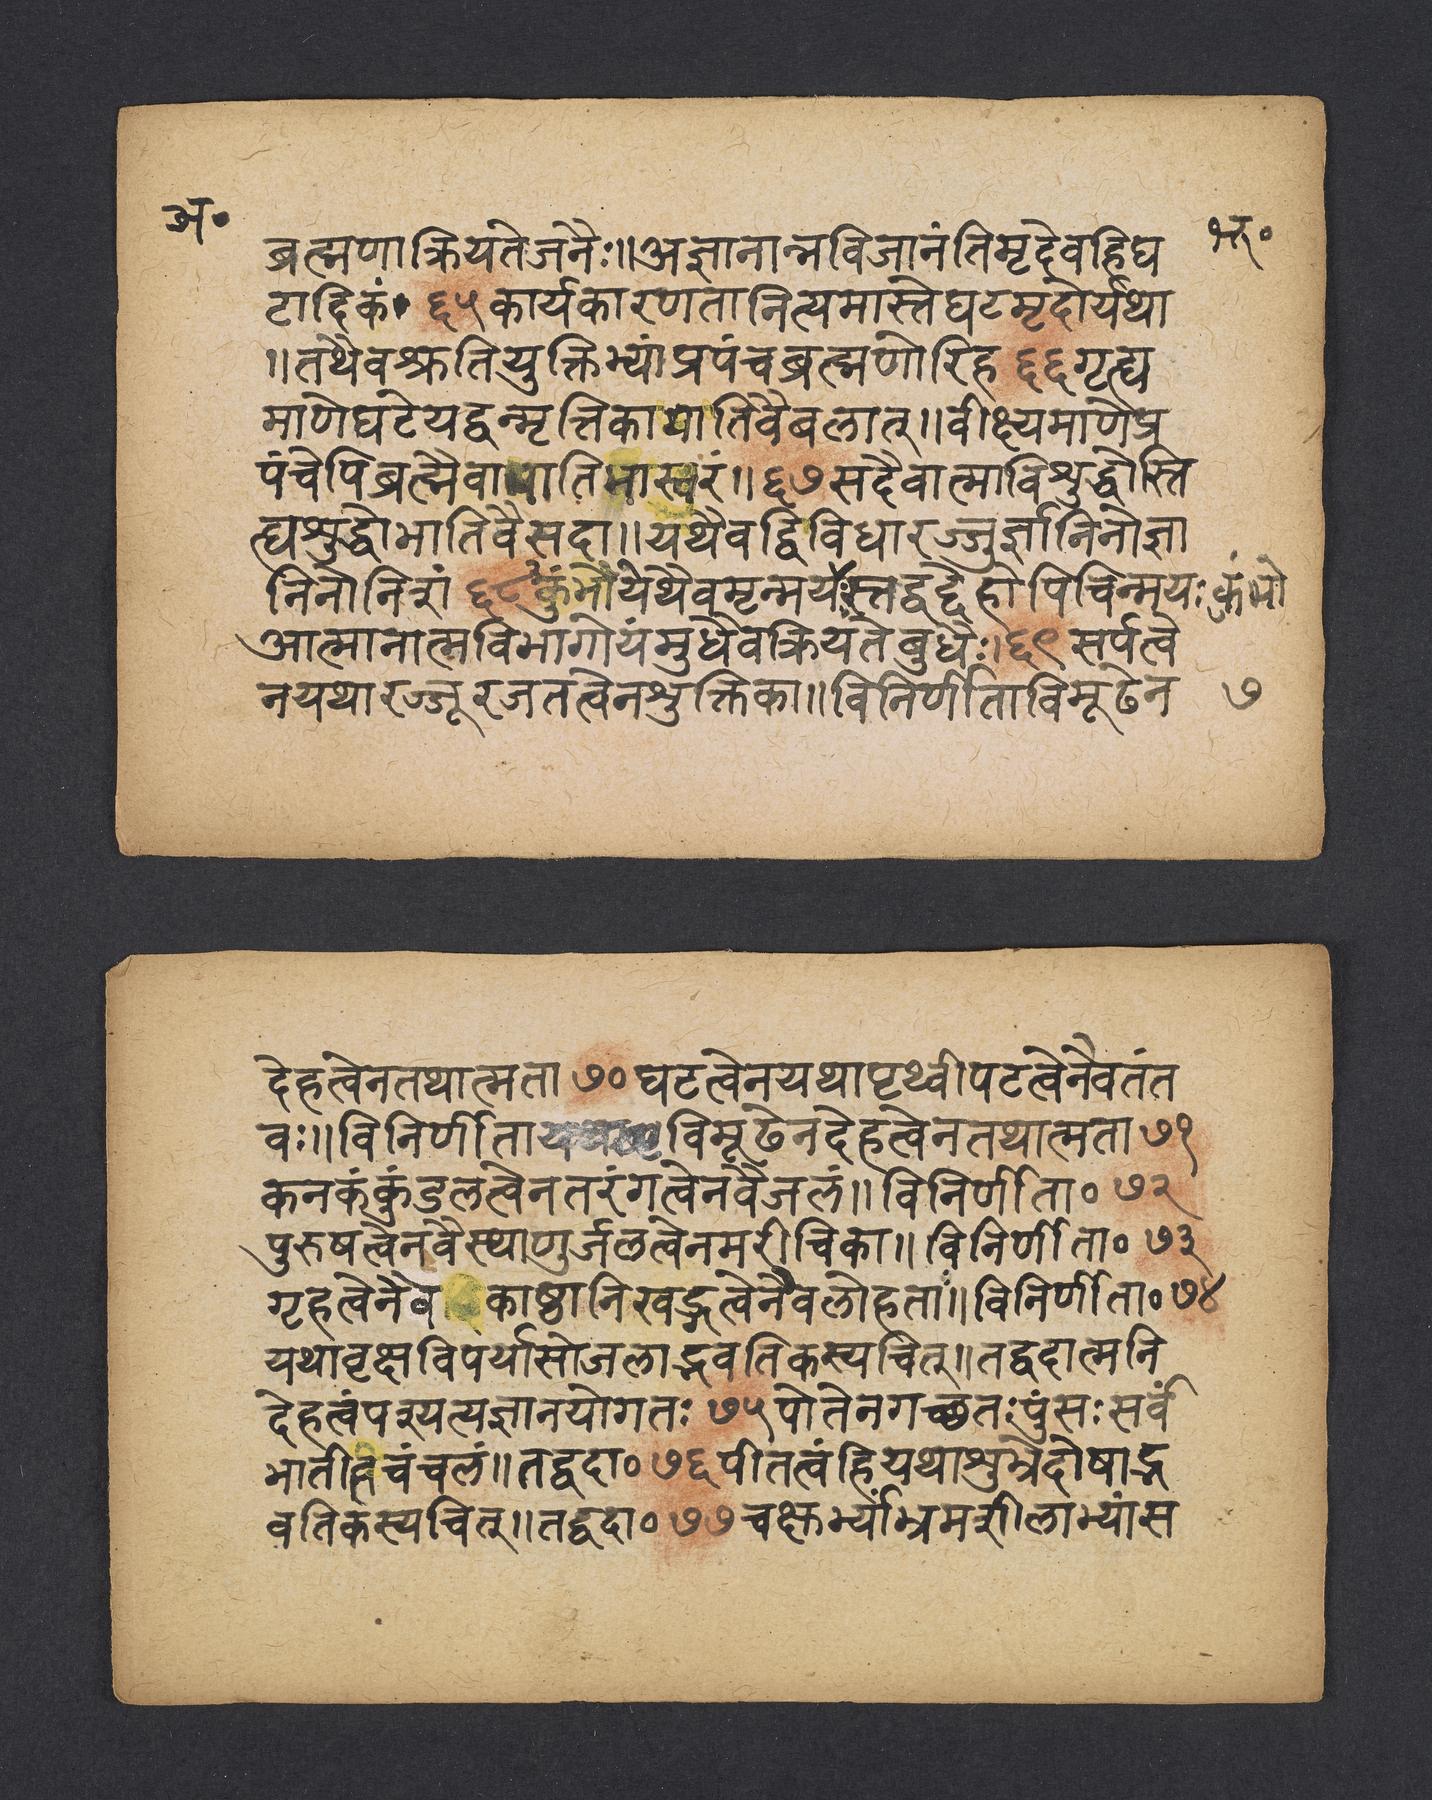 अ॰
भू॰
ब्रह्मणाक्रियतेजनैः॥अज्ञानान्नविजानंतिमृदेवहिघ
टादिकं ६५ कार्यकारणतानित्यमास्तेघटमृदोर्यथा
॥तथैवश्रुतियुक्तिभ्यांप्रपंचब्रह्मणोरिह ६६ गृह्य
माणेघटेयद्वन्मृत्तिकायातिवैबलात्॥वीक्ष्यमाणेप्र
पंचेपिब्रह्मैवाभातिभास्वरं॥६७ सदैवात्माविशुद्धोस्ति
ह्यशुद्धोभातिवैसदा॥यथैवद्विविधारज्जुर्ज्ञानिनोज्ञा
निनोनिशं ६८ कुंभोयथैवमृन्मयस्तद्वद्देहोपिचिन्मयः
कुंभो
आत्मानात्मविभागोयंमुधैवक्रियतेबुधैः।६९ सर्पत्वे
नयथारज्जूरजतत्वेनशुक्तिका॥विनिर्णीताविमूढेन
७
देहत्वेनतथात्मता ७० घटत्वेनयथापृथ्वीपटत्वेनैवतंत
वः॥विनिर्णीताविमूढेनदेहत्वेनतथात्मता ७१
कनकंकुंडलत्वेनतरंगत्वेनवैजलं॥विनिर्णीता॰ ७२
पुरुषत्वेनवैस्थाणुर्जलत्वेनमरीचिका॥विनिर्णीता॰ ७३
गृहत्वेनैवकाष्ठानिखड्गत्वेनैवलोहता॥विनिर्णीता॰ ७४
यथावृक्षविपर्यासोजलाद्भवतिकस्यचित्॥तद्वदात्मनि
देहत्वंपश्यत्यज्ञानयोगतः ७५ पोतेनगच्छतःपुंसःसर्वं
भातीवचंचलं॥तद्वदा॰ ७६ पीतत्वंहियथाशुभ्रेदोषाद्भ
वतिकस्यचित्॥तद्वदा॰ ७७ चक्षुभ्यांभ्रमशीलाभ्यांस